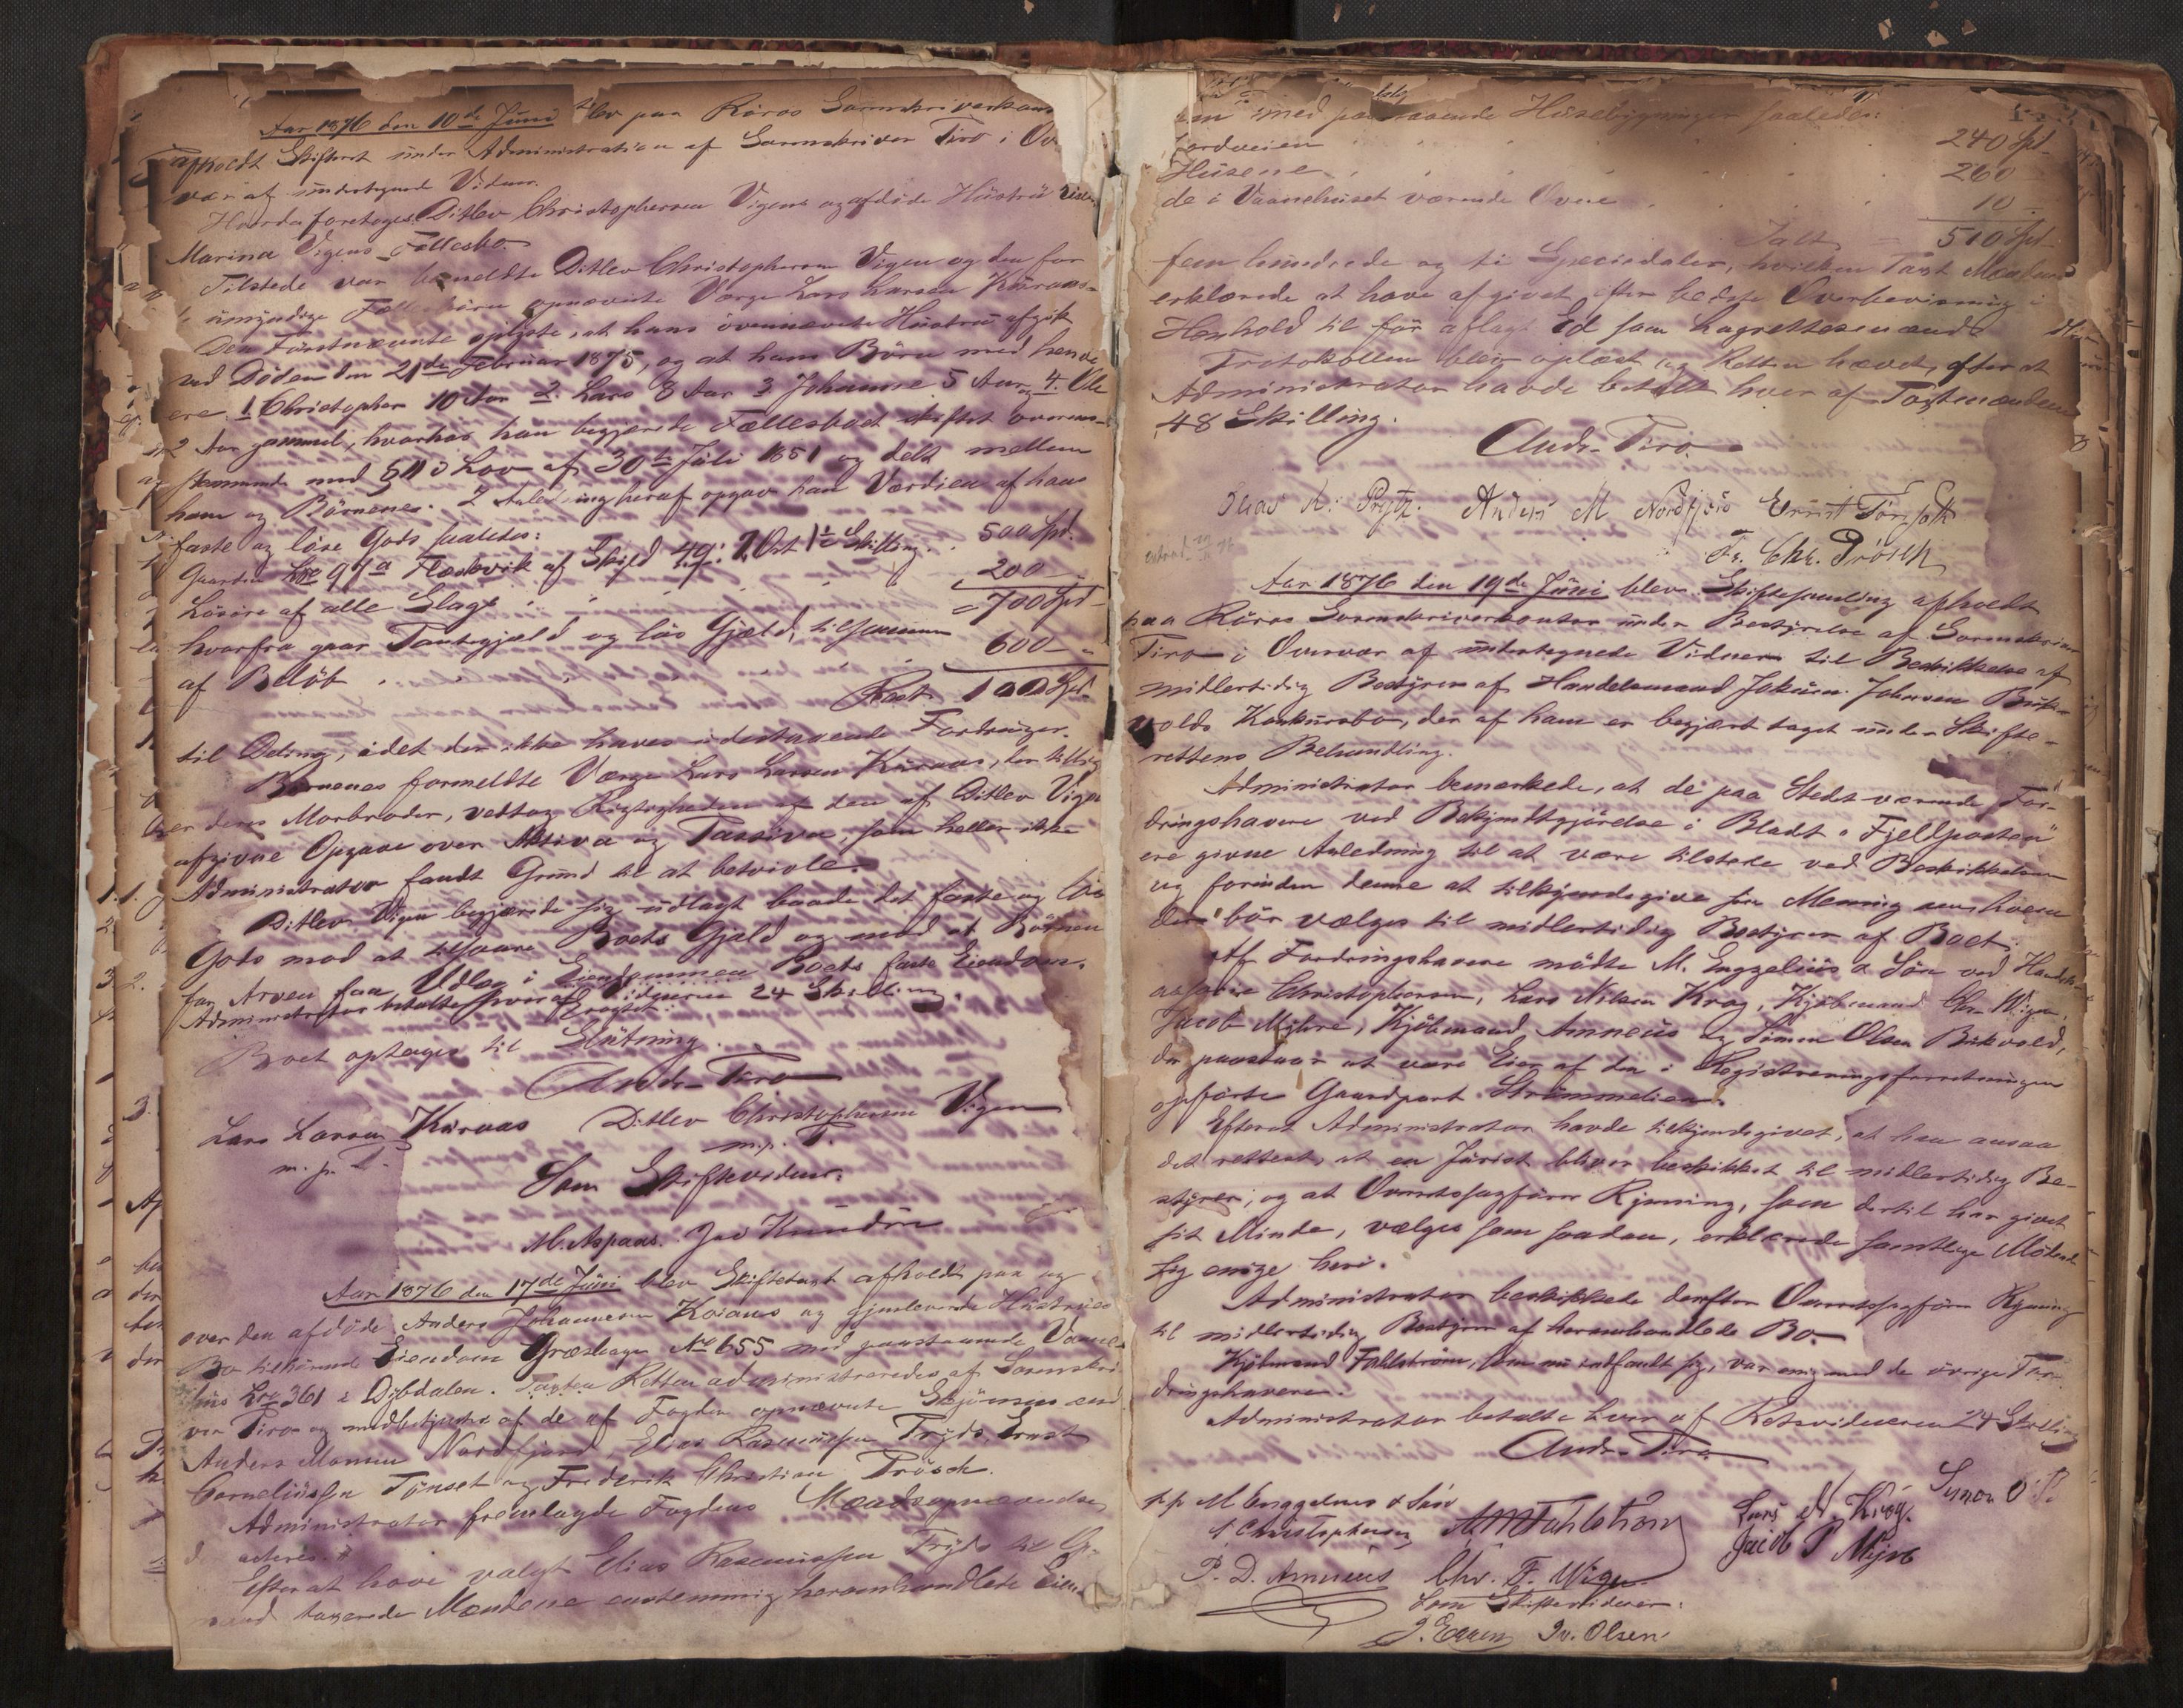 Aar 1876 den 10de Juni blev paa Röros Sorenskriverkon
afholdt Skifteret under Administration af Sorenskriver Tiro i Ov
vær af undertegnede Vidner.
Hvorda foretoges Ditlev Christophersen Vigens og afdöde Hustru
Marina Vigens Fællesbo.
Tilstede var bemeldte Ditlev Christophersen Vigen og den for
umyndige Fællesbörn opnævnte Værge Lars Larsen Kuraas.
Den Förstnævnte oplyste, at hans övennævnte Hustru afgik
ved Döden den 21de Februar 1875, og at hans Börn med hende
ere: 1 Christopher 10 Aar 2. Lars 8 Aar 3 Johanne 5 Aar og 4. Ole
2 Aar gammel, hvorhos han begjærede Fællesboet skiftet overens-
stemmende med § 11 i Lov af 30te Juli 1851 og delt mellem
ham og Börnene. I Anledning heraf opgav han Værdien af hans
faste og löse Gods saaledes:
Gaarden Lne 97a Floskvik af Skyld 49: 2 Ort 1½ Skilling . . 500 Spd.
Lösöre af alle Slags . . . 200 —
= 700 Spd
hvorfra gaar Pantegjæld og lös Gjæld, tilsammen
af Belöb . . . 600 —
Rest 100 Spd
til Deling, idet der ikke haves udestaaende Fordringer.
Börnenes formeldte Værge Lars Larsen Kuraas, der tillige
er deres Morbroder, vedtog Rigtigheden af den af Ditlev Vigen
afgivne Opgave over Aktiva og Passiva, som heller ikke
Administrator fandt Grund til at betvivle.
Ditlev Vigen begjærede sig udlagt baade det faste og löse
Gods mod at tilsvare Boets Gjæld og mod at Börnene
for Arven faa Udlæg i Eiendommen Boets faste Eiendom.
Administrator betalte hver af Vidnerne 24 Skilling.
Boet optages til Slutning.
Andr. Tiro
Lars Larsen Kuraas Ditlev Christophersen Vigen
m. p. P. m. p. P.
Som Skiftevidner:
M. Aspaas. Jac Kundsen
Aar 1876 den 17de Juni blev Skiftetaxt afholdt paa og
over den afdöde Anders Johannesen Koiaas og gjenlevende Hustrues
Bo tilhörende Eiendom Græshage No 655 med paastaaende Vaanings-
hus Lne 361 i Djbdalen. Taxten Retten administreredes af Sorenskri-
ver Tiro og medbetjentes af de af Fogden opnævnte Skjönsmænd
Anders Monsen Nordfjord, Elias Rasmussen Prýds, Ernst
Corneliussen Tönset og Frederik Christian Prösch.
Administrator fremlagde Fogdens Mændsopnævnelse
acteres.
Efter at have valgt Elias Rasmussen Prýds til Op-
mand taxerede Mændene enstemmig heromhandlede Eien
med paastaaende Husebygninger saaledes:
Jordveien . . . 240 Spd
Husene . . . 260
de i Vaanehuset værende Ovne . . . 10
Ialt = 510 Spd
fem hundrede og ti Speciedaler, hvilken Taxt Mændene
erklærede at have afgivet efter bedste Overbevisning i
Henhold til för aflagt Ed som Lagrettesmænd.
Protokollen blev oplæst og Retten hævet, efter at
Administrator havde betalt hver af Taxtmændene
48 Skilling.
Andr. Tiro.
Elias R: Prytz. Anders M Nordfjord Ernst Tönset
Fr. Chr. Prösch
Aar 1876 den 19de Juni blev Skiftesamling afholdt
paa Röros Sorenskriverkontor under Bestyrelse af Sorenskriver
Tiro i Overvær af undertegnede Vidner til Beskikkelse af
midlertidig Bestyrer af Handelsmand Jokum Johnsen Buk-
volds Konkursbo, der af ham er begjært taget under Skifte-
rettens Behandling.
Administrator bemærkede, at de paa Stedet værende For-
dringshavere ved Bekjendtgjörelse i Bladet „Fjellposten"
ere givne Anledning til at være tilstede ved Beskikkelsen
og forinden denne at tilkjendegive sin Mening om hvem
der bör vælges til midlertidig Bestyrer af Boet.
Af Fordringshavere mödte M. Engzelius & Sön ved Handels-
Christophersen, Lars Nilsen Krog, Kjöbmand Chr. Wigen,
Jacob Mÿhre, Kjöbmand Amneus og Simen Olsen Bukvold,
der paastaar at være Eier af den i Registreringsforretningen
opförte Gaardpart Strömmelien.
Efterat Administrator havde tilkjendegivet, at han ansaa
det rettest, at en Jurist bliver beskikket til midlertidig Be-
styrer, og at Overretssagförer Rynning, som dertil har givet
sit Minde, vælges som saadan, erklærede samtlige Mödende
sig enige heri.
Administrator beskikkede derefter Overretssagförer Rynning
til midlertidig Bestyrer af heromhandlede Bo.
Kjöbmand Fahlström, som nu indfandt sig, var enig med de övrige For-
dringshavere.
Administrator betalte hver af Retsvidnerne 24 Skilling
Andr. Tiro
pp M Engzelius & Sön
Christophersen AM Fahlström Lars N. Krog. Simon O.
P. D. Amneus Chr. F. Wigen. Jacob P Myhre
Som Skiftevidner:
J. Eggen Iv. Olsen